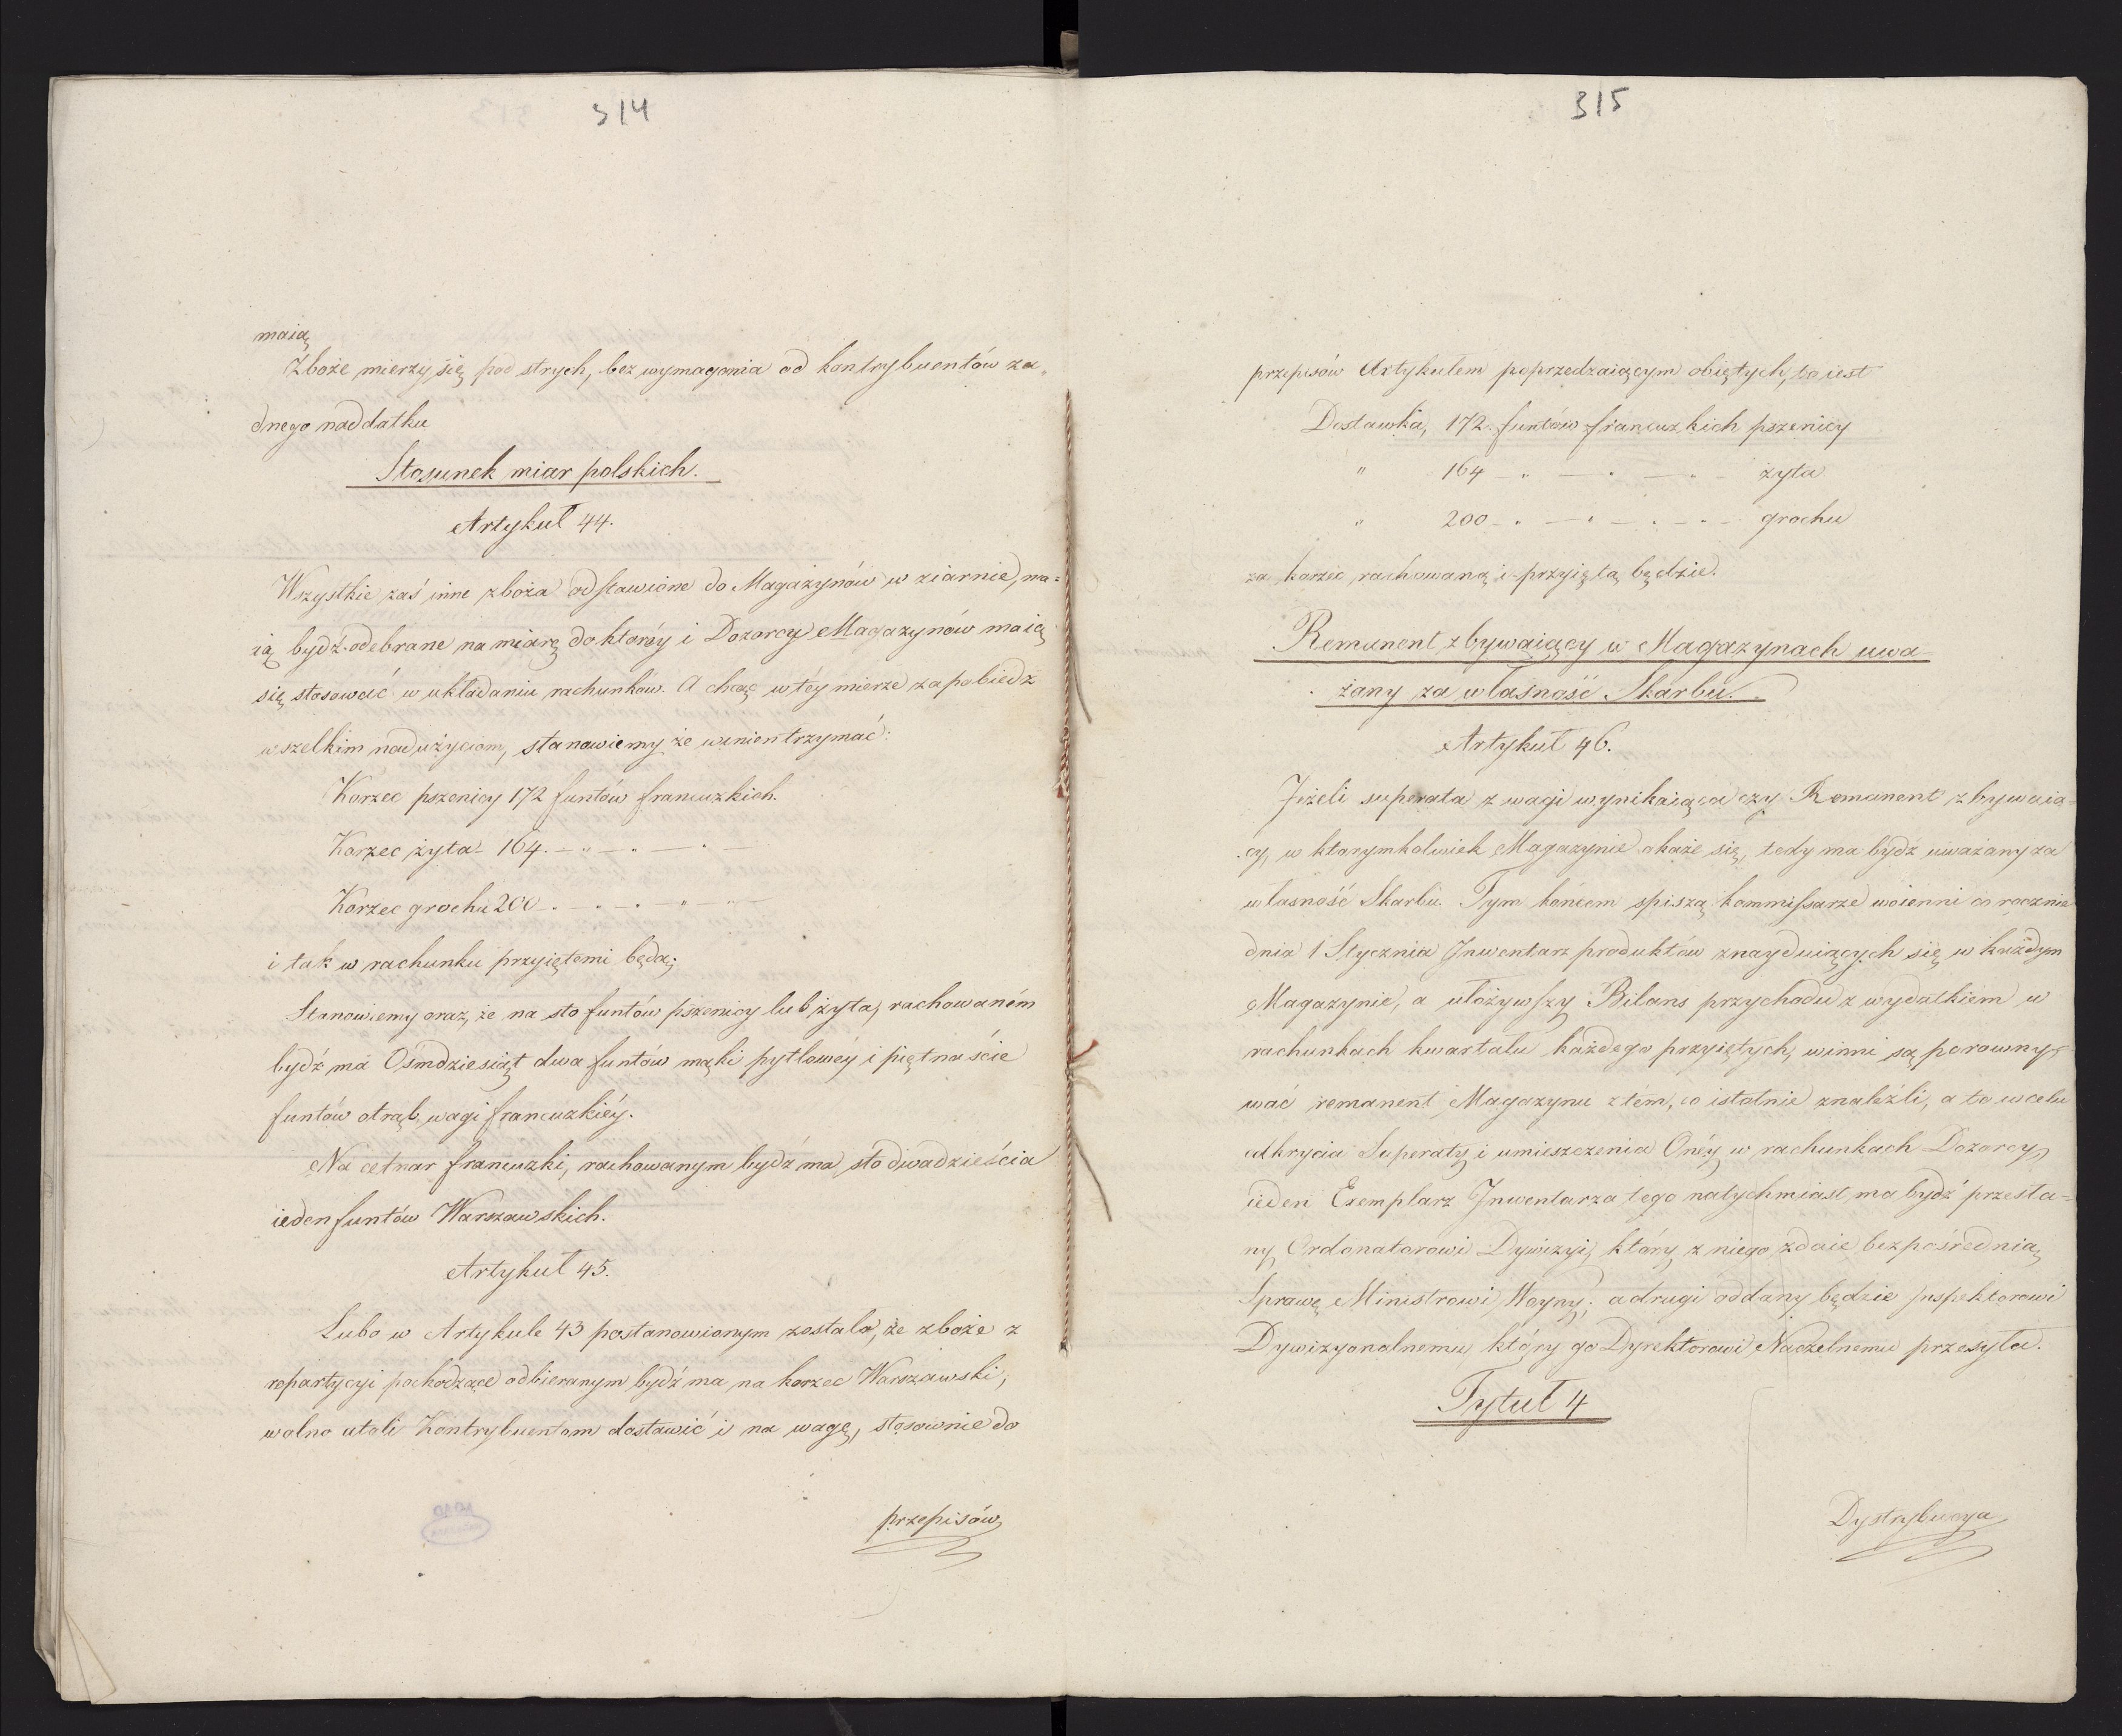 314
maią
Zboże mierzy się pod strych, bez wymagania od kontrybuentów ża„
dnego naddatku
Stosunek miar polskich.
Artykuł 44.
Wszystkie zaś inne zboża odstawione do Magazynów w ziarnie, ma=
ią bydź odebrane na miarę do któréy i Dozorcy Magazynów maią
się stosować w układaniu rachunków. A chcąc w téy mierze zapobiedz
wszelkim nadużyciom, stanowiemy że winien trzymać:
Korzec pszenicy 172 funtów francuzkich.
Korzec żyta - 164. — „ — „ — „ —
Korzec grochu 200 — „ — „ — „ —
i tak w rachunku przyiętemi będą;
Stanowiemy oraz, że na sto funtów pszenicy lub żyta, rachowaném
bydź má Ośmdziesiąt dwa funtów mąki pytlowéy i piętnaście
funtów otrąb, wagi francuzkiéy.
Na cetnar francuzki, rachowanym bydź ma sto dwadzieścia
ieden funtów Warszawskich.
Artykuł 45.
Lubo w Artykule 43 postanowionym zostało, że zboże z
repartycyi pochodzące odbieranym bydź ma na korzec Warszawski;
wolno atoli Kontrybuentom dostawić i na wagę, stosownie do
przepisów
315
przepisów Artykułem poprzedzaiącym obiętych, to iest
Dostawka, 172. funtów francuzkich pszenicy
„ 164 — „ — „ — „ — żyta
„ 200 — „ — „ — „ — grochu
za korzec rachowaną i przyiętą będzie.
Remanent zbywaiący w Magazynach uwa-
żany za własność Skarbu.
Artykuł 46.
Jeżeli superata z wagi wynikaiąca czy Remanent zbywaią-
cy, w którymkolwiek Magazynie okaże się, tedy ma bydź uważany za
własność Skarbu. Tym końcem spiszą kommissarze woienni co rocznie
dnia 1 Stycznia Inwentarz produktów znayduiących się w każdym
Magazynie, a ułożywszy Bilans przychodu z wydatkiem w
rachunkach kwartału każdego przyiętych, winni są porowny-
wać remanent Magazynu z tém, co istotnie znaleźli, a to w celu
odkrycia Superaty i umieszczenia Onéy w rachunkach Dozorcy,
ieden Exemplarz Inwentarza tego natychmiast, ma bydź przesła=
ny, Ordonatorowi Dywizyi, który z niego zdaie bezpośrednią
Sprawę Ministrowi Woyny; a drugi oddany będzie Inspektorowi
Dywizyonalnemu, który go Dyrektorowi Naczelnemu przesyła.
Tytuł 4
Dystrybucya